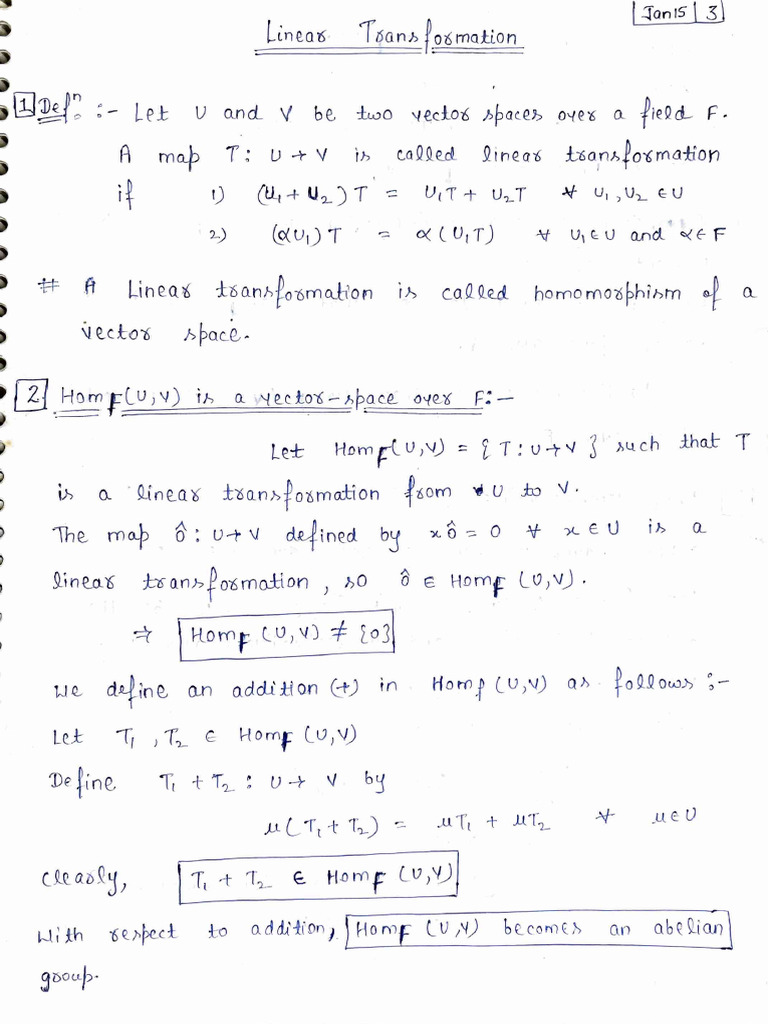 Jan15 | 3
Linear Transformation
1 Defⁿ :- Let U and V be two vector spaces over a field F.
A map T: U → V is called linear transformation
if 1) (u₁ + u₂) T = u₁T + u₂T ∀ u₁, u₂ ∈ U
2) (αu₁) T = α (u₁T) ∀ u₁ ∈ U and α ∈ F
# A Linear transformation is called homomorphism of a
vector space.
2 Hom_F(U,V) is a vector-space over F:-
Let Hom_F(U,V) = { T: U → V } such that T
is a linear transformation from U to V.
The map ô : U → V defined by xô = 0 ∀ x ∈ U is a
linear transformation, so ô ∈ Hom_F (U,V).
⇒ Hom_F (U,V) ≠ {0}
We define an addition (+) in Hom_F (U,V) as follows :-
Let T₁, T₂ ∈ Hom_F (U,V)
Define T₁ + T₂ : U → V by
u(T₁ + T₂) = uT₁ + uT₂ ∀ u ∈ U
Clearly, T₁ + T₂ ∈ Hom_F (U,V)
With respect to addition, Hom_F (U,V) becomes an abelian
group.